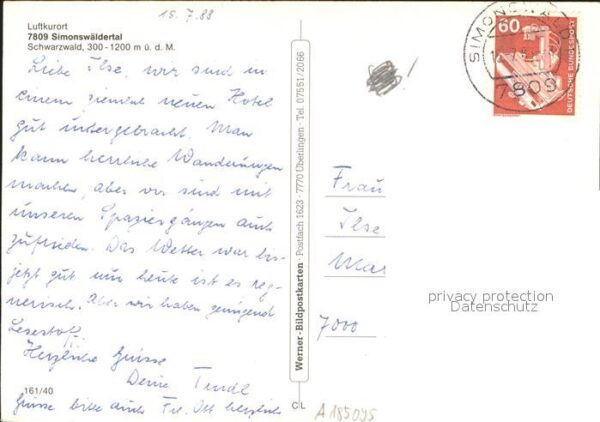 15.7.88
Luftkurort
7809 Simonswäldertal
Schwarzwald, 300-1200 m ü. d. M.
Liebe Ilse, wir sind in
einem ziemlich neuen Hotel
gut untergebracht. Man
kann herrliche Wanderungen
machen, aber wir sind mit
unseren Spaziergängen auch
zufrieden. Das Wetter war bis-
jetzt gut nur heute ist es reg-
nerisch. Aber wir haben genügend
Lesestoff
Herzliche Grüsse
Deine Trudl
Grüsse bitte auch Frl. Ott herzlich
161/40
Werner-Bildpostkarten · Postfach 1623 · 7770 Überlingen · Tel. 07551/2066
CL
A185095
!
SIMONSWALD
7809
60
DEUTSCHE BUNDESPOST
Frau
Ilse
Mar
7000
privacy protection
Datenschutz